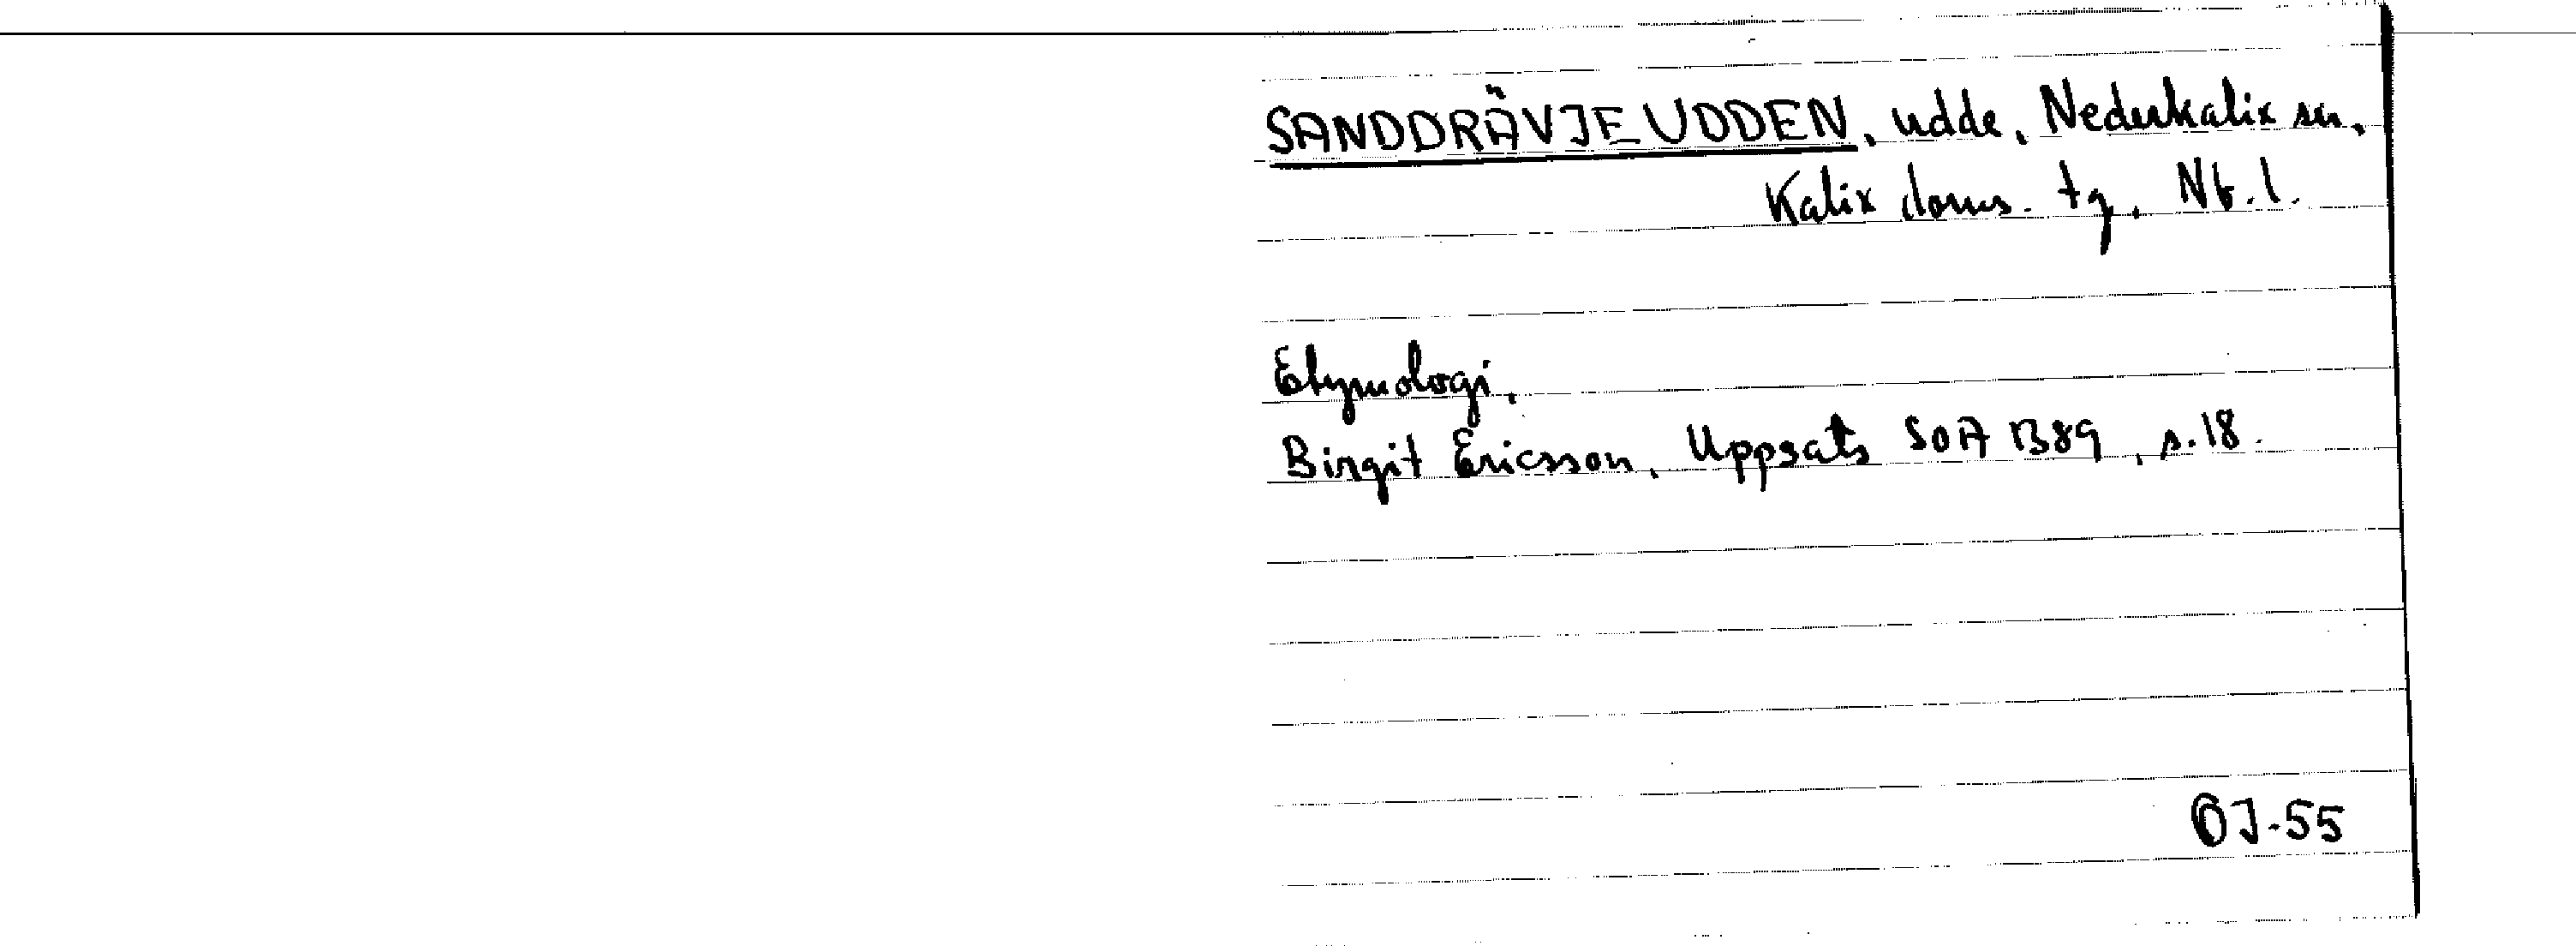 SANDDRÄVJEUDDEN, udde, Nederkalix sn,
Kalix doms. tg, Nb. l.
Etymologi.
Birgit Ericsson, Uppsats SOA B89, s. 18.
ÖJ-55